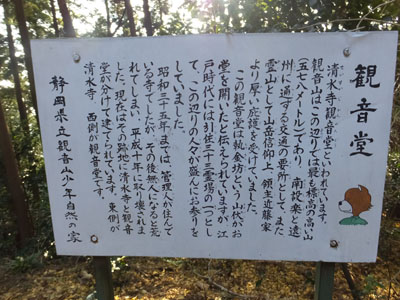 観音堂
清水寺観音堂といわれています。
観音山はこの辺りでは最も標高の高い山
(五七八メートル)であり、南設楽と遠
州に通ずる交通の要所として、また
霊山として山岳信仰上、領主近藤家
より厚い庇護を受けていました。
この観音堂は執金坊という山伏がお
堂を開いたと伝えられていますが、江
戸時代には引佐三十三霊場の一つとし
て、この辺りの人々が盛んにお参りを
していました。
昭和三十五年までは、管理人が住んで
いる寺でしたが、その後無人になると荒
れてしまい、平成十年に取り壊されま
した。現在はその跡地に清水寺と観音
堂が分けて建てられています。東側が
清水寺、西側が観音堂です。
静岡県立観音山少年自然の家